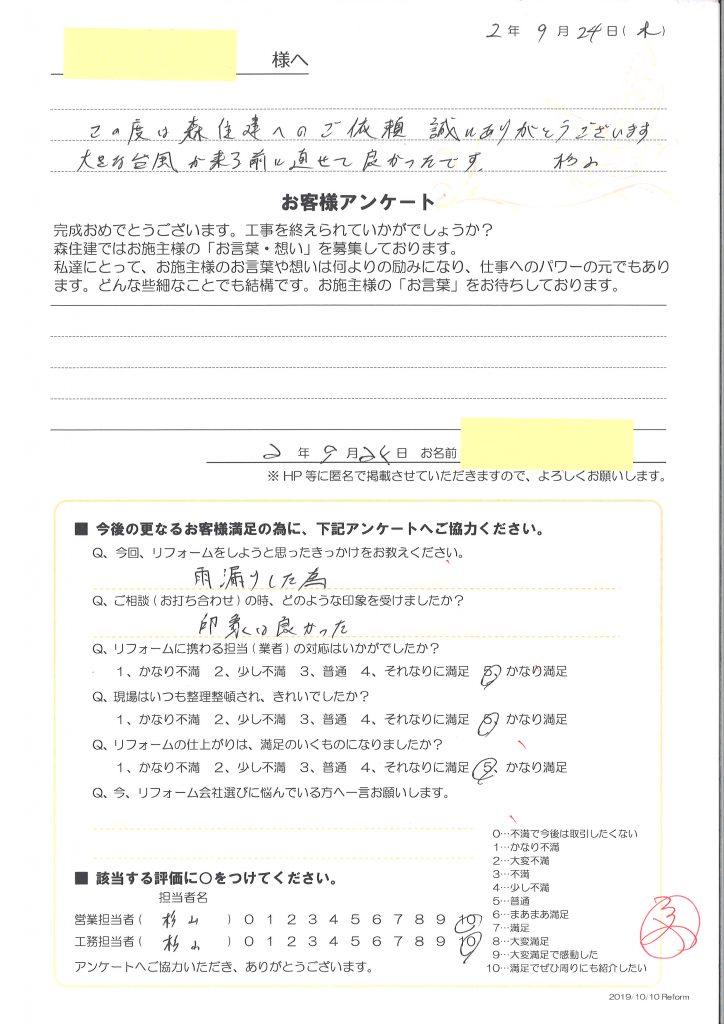 2年 9月 24日(木)
様へ
この度は森住建へのご依頼 誠にありがとうございます
大きな台風が来る前に直せて良かったです。 杉山
お客様アンケート
完成おめでとうございます。工事を終えられていかがでしょうか?
森住建ではお施主様の「お言葉・想い」を募集しております。
私達にとって、お施主様のお言葉や想いは何よりの励みになり、仕事へのパワーの元でもあり
ます。どんな些細なことでも結構です。お施主様の「お言葉」をお待ちしております。
2 年 9 月 24 日 お名前
※HP等に匿名で掲載させていただきますので、よろしくお願いします。
■ 今後の更なるお客様満足の為に、下記アンケートへご協力ください。
Q、今回、リフォームをしようと思ったきっかけをお教えください。
雨漏りした為
Q、ご相談(お打ち合わせ)の時、どのような印象を受けましたか?
印象は良かった
Q、リフォームに携わる担当(業者)の対応はいかがでしたか?
1、かなり不満 2、少し不満 3、普通 4、それなりに満足 5、かなり満足
Q、現場はいつも整理整頓され、きれいでしたか?
1、かなり不満 2、少し不満 3、普通 4、それなりに満足 5、かなり満足
Q、リフォームの仕上がりは、満足のいくものになりましたか?
1、かなり不満 2、少し不満 3、普通 4、それなりに満足 5、かなり満足
Q、今、リフォーム会社選びに悩んでいる方へ一言お願いします。
0…不満で今後は取引したくない
1…かなり不満
2…大変不満
3…不満
4…少し不満
5…普通
6…まあまあ満足
7…満足
8…大変満足
9…大変満足で感動した
10…満足でぜひ周りにも紹介したい
■ 該当する評価に○をつけてください。
担当者名
営業担当者( 杉山 )0 1 2 3 4 5 6 7 8 9 10
工務担当者( 杉山 )0 1 2 3 4 5 6 7 8 9 10
アンケートへご協力いただき、ありがとうございます。
2019/10/10 Reform